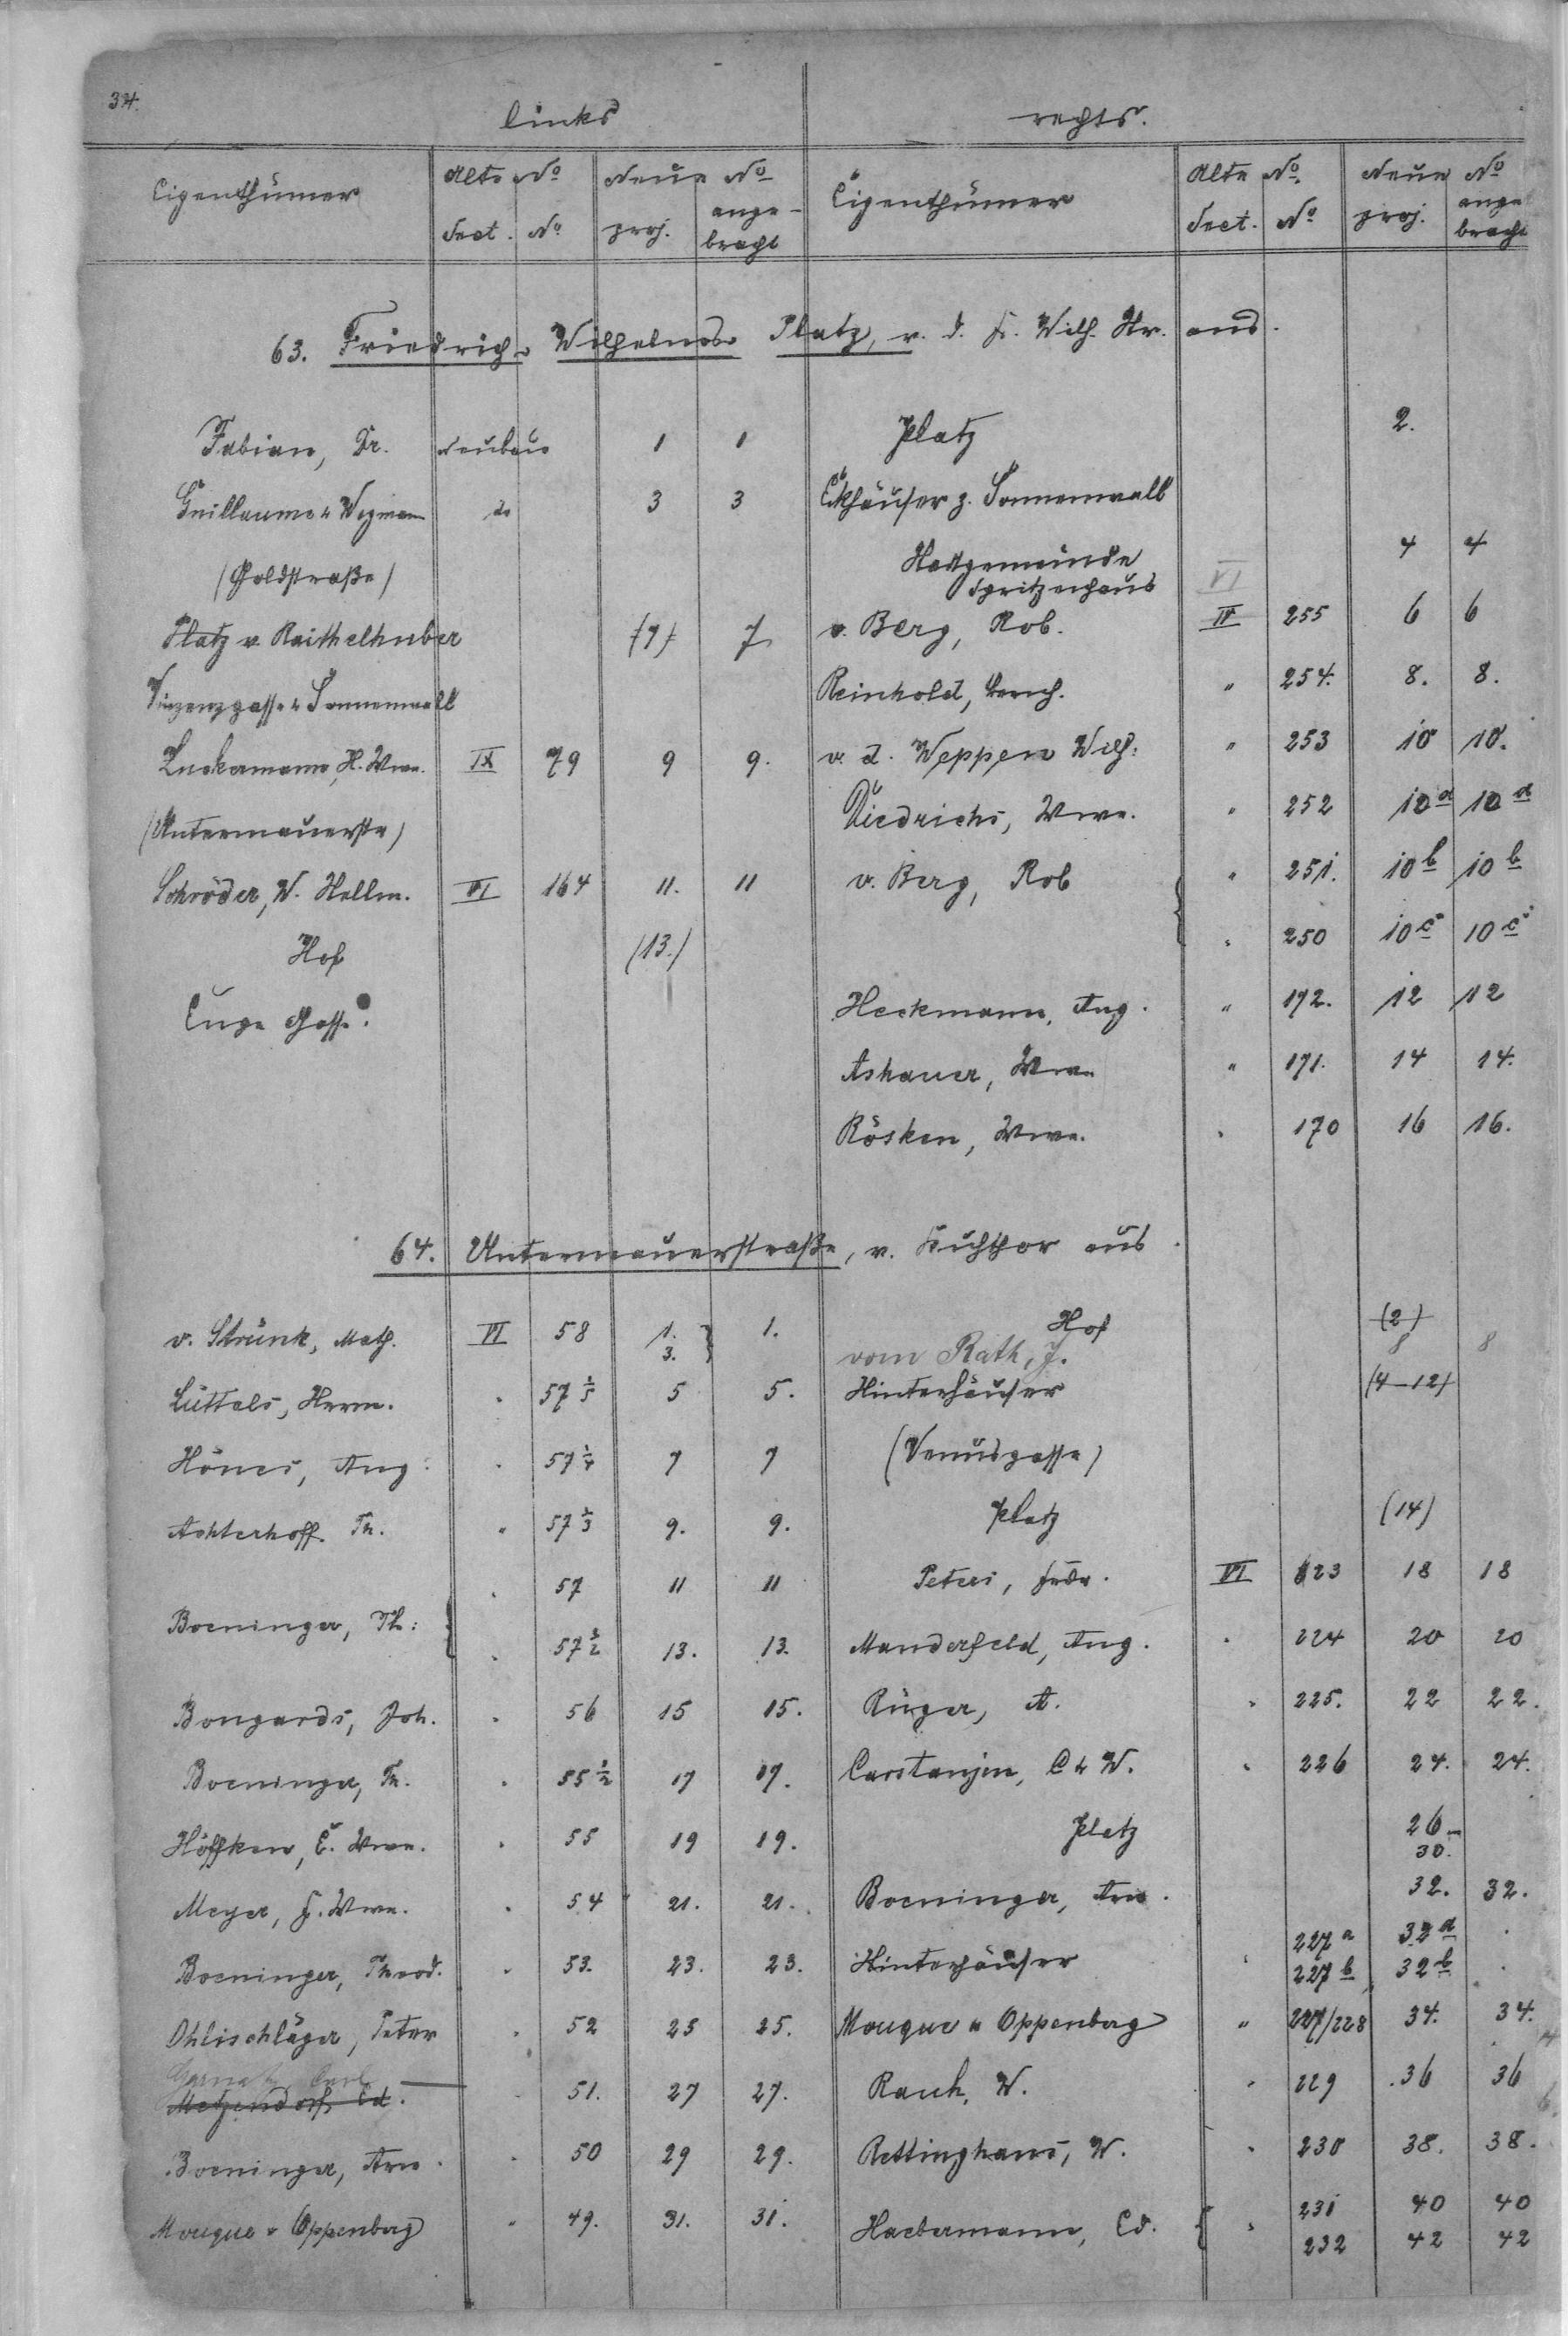 34.
links rechts.
Eigenthümer Alte No Neue No Eigenthümer Alte No. Neue No
Sect. No proj. ange-bracht Sect. No proj. angebracht
63. Friedrich-Wilhelms-Platz, v. d. F. Wilh. Str. aus.
Fabian, Dr. Neubau 1 1 Platz 2.
Guillaume u Wegmann do 3 3 Eckhäuser z. Sonnenwall
(Goldstraße) Stadtgemeinde 4 4
Spritzenhaus VI
Platz v. Raithelhuber (7) 7 v. Berg, Rob. IV 255 6 6
Vinzenzgasse u Sonnenwall Reinhold, Bernh. " 254. 8. 8.
Luckermann, H. Wwe. IX 79 9 9. v. d. Weppen Wilh: " 253 10 10.
(Untermauerstr) Diedrichs, Wwe. " 252 10a 10a
Schröder, W. Hellm. VI 164 11. 11 v. Berg, Rob " 251. 10b 10b
Hof (13.) " 250 10c 10c
Enge Gasse. Heckmann, Aug. " 172. 12 12
Ashauer, Wwe " 171. 14 14.
Rösken, Wwe. " 170 16 16.
64. Untermauerstraße, v. Kuhthor aus.
v. Strünk, Math. VI 58 1. 3. } 1. Hof (2)
vom Rath, J. 8 8
Lüttels, Herm. " 57 1/5 5 5. Hinterhäuser (4-12)
Hönes, Aug: " 57 1/4 7 7 (Venusgasse)
Achterhoff. Th. " 57 1/3 9. 9. Platz (14)
" 57 11 11 Peters, Frdr. VI 223 18 18
Boeninger, Th: { " 57 1/2 13. 13. Manderfeld, Aug. " 224 20 20
Bongards, Joh. " 56 15 15. Rüger, A. " 225. 22 22.
Boeninger, Th. " 55 1/2 17 17. Carstanjen, C u W. " 226 24. 24.
Höffken, E. Wwe. " 55 19 19. Platz 26-30.
Meyer, F. Wwe. " 54 21. 21. Boeninger, Arn. 32. 32.
227a 32a "
Boeninger, Theod. " 53. 23. 23. Hinterhäuser " 227b 32b "
Ohlischläger, Peter " 52 25 25. Mouque u Oppenberg " 227/228 34. 34.
Carl
Metzendorf, Ed. " 51. 27 27. Rauh, W. " 229 36 36
Boeninger, Arn. " 50 29 29. Rettinghaus, W. " 230 38. 38.
Mouque u Oppenberg " 49. 31. 31. Haebermann, Ed. { " 231 40 40
232 42 42